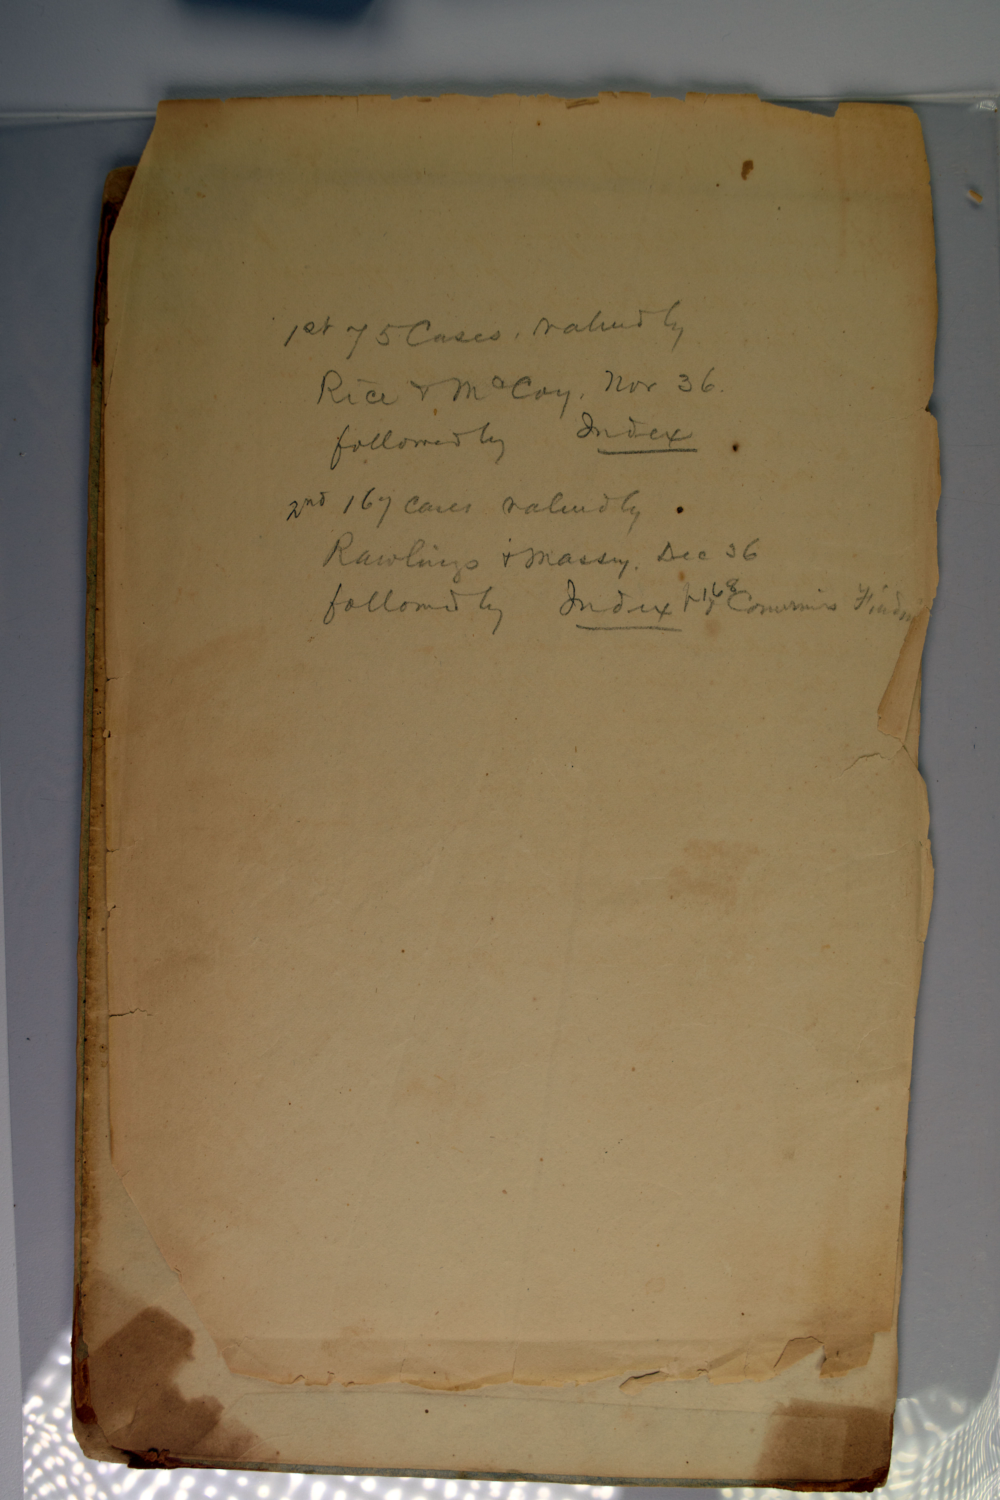 1st 75 Cases, valued by
Rice & McCoy, Nov 36.
followed by Index
2nd 167 cases valued by
Rawlings & Massey. Dec 36
followed by Index 168